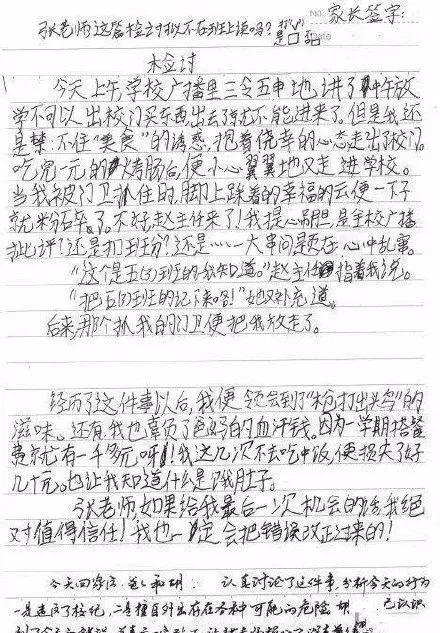 家长签字:
No.
Date
张老师这篇检讨可以不在班上读吗?
是口 否口
检讨
今天上午,学校广播里三令五申地讲了中午放
学不可以出校门买东西出去了就不能进来了,但是我还
是禁不住“美食”的诱惑,抱着侥幸的心态走出了校门。
吃完一元的烤肠后,便小心翼翼地又走进学校。
当我被门卫抓住时,脚上踩着的幸福的云便一下子
就粉碎了。不好,赵主任来了!我提心吊胆,是全校广播
批评?还是扣班分?还是……一大串问题在心中乱窜。
“这个是五(四)班的我知道。”赵主任指着我说。
“把五(四)班的记下来哈!”她又补充道。
后来,那个抓我的门卫便把我放走了。
经历了这件事以后,我便领会到了“枪打出头鸟”的
滋味。还有,我也辜负了爸妈的血汗钱。因为一学期搭餐
费就有一千多元呀!我这几次不去吃中饭,便损失了好
几十元。也让我知道什么是饿肚子。
张老师,如果给我最后一次机会的话我绝
对值得信任!我也一定会把错误改正过来的!
今天回家后,爸爸和 认真讨论了这件事,分析今天的行为
一是违反了校纪,二是擅自外出存在各种可能的危险 已认识
到了今天